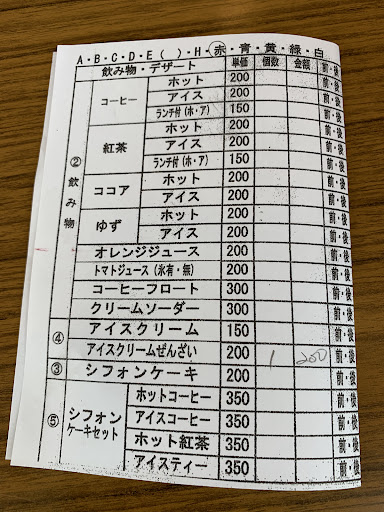 A・B・C・D・E( )・H・赤・青・黄・緑・白
飲み物・デザート 単価 個数 金額 前・後
②飲み物 コーヒー ホット 200 前・後
アイス 200 前・後
ランチ付(ホ・ア) 150 前・後
紅茶 ホット 200 前・後
アイス 200 前・後
ランチ付(ホ・ア) 150 前・後
ココア ホット 200 前・後
アイス 200 前・後
ゆず ホット 200 前・後
アイス 200 前・後
オレンジジュース 200 前・後
トマトジュース(氷有・無) 200 前・後
コーヒーフロート 300 前・後
クリームソーダー 300 前・後
④ アイスクリーム 150 前・後
アイスクリームぜんざい 200 1 200 前・後
③ シフォンケーキ 200 前・後
⑤ シフォンケーキセット ホットコーヒー 350 前・後
アイスコーヒー 350 前・後
ホット紅茶 350 前・後
アイスティー 350 前・後